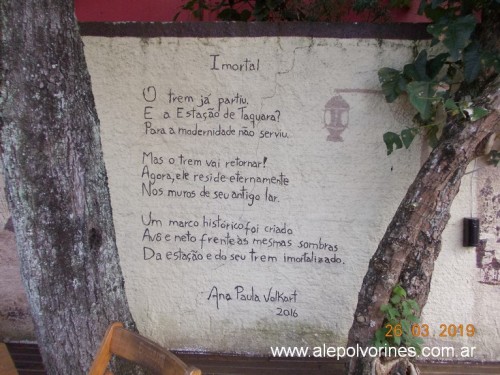 Imortal
O trem já partiu.
E a Estação de Taquara?
Para a modernidade não serviu.
Mas o trem vai retornar!
Agora, ele reside eternamente
Nos muros de seu antigo lar.
Um marco histórico foi criado
Avô e neto frente às mesmas sombras
Da estação e do seu trem imortalizado.
Ana Paula Volkart
2016
25 03 2019
www.alepolvorines.com.ar